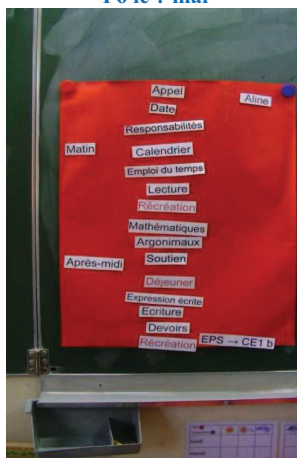 Appel
Aline
Date
Responsabilités
Matin
Calendrier
Emploi du temps
Lecture
Récréation
Mathématiques
Argonimaux
Après-midi
Soutien
Déjeuner
Expression écrite
Ecriture
Devoirs
Récréation
EPS → CE1 b
lundi
mardi